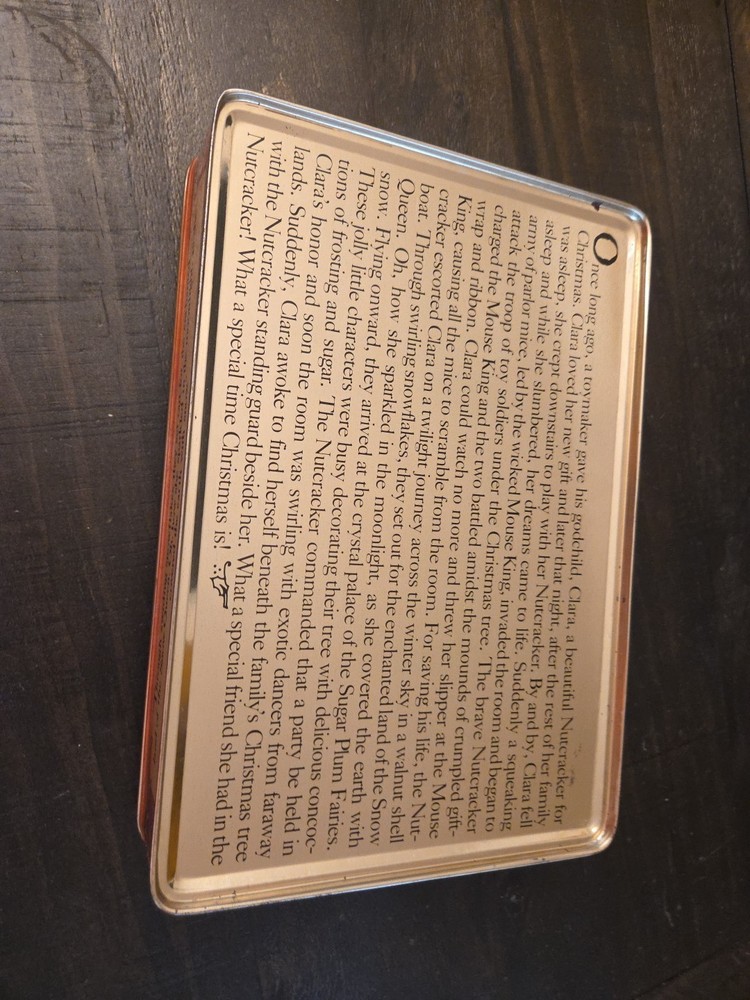 Once long ago, a toymaker gave his godchild, Clara, a beautiful Nutcracker for
Christmas. Clara loved her new gift and later that night, after the rest of her family
was asleep, she crept downstairs to play with her Nutcracker. By and by, Clara fell
asleep and while she slumbered, her dreams came to life. Suddenly a squeaking
army of parlor mice, led by the wicked Mouse King, invaded the room and began to
attack the troop of toy soldiers under the Christmas tree. The brave Nutcracker
charged the Mouse King and the two battled amidst the mounds of crumpled gift-
wrap and ribbon. Clara could watch no more and threw her slipper at the Mouse
King, causing all the mice to scramble from the room. For saving his life, the Nut-
cracker escorted Clara on a twilight journey across the winter sky in a walnut shell
boat. Through swirling snowflakes, they set out for the enchanted land of the Snow
Queen. Oh, how she sparkled in the moonlight, as she covered the earth with
snow. Flying onward, they arrived at the crystal palace of the Sugar Plum Fairies.
These jolly little characters were busy decorating their tree with delicious concoc-
tions of frosting and sugar. The Nutcracker commanded that a party be held in
Clara's honor and soon the room was swirling with exotic dancers from faraway
lands. Suddenly, Clara awoke to find herself beneath the family's Christmas tree
with the Nutcracker standing guard beside her. What a special friend she had in the
Nutcracker! What a special time Christmas is!